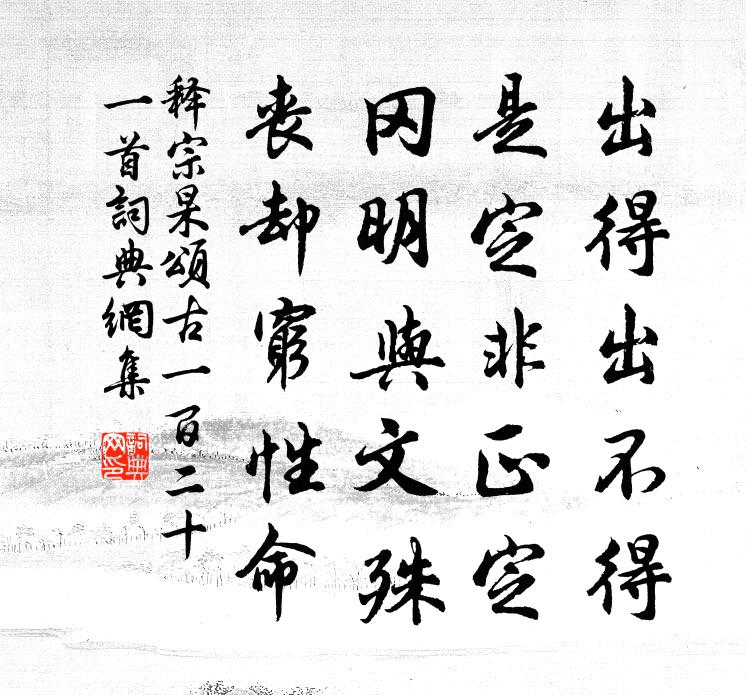 出得出不得
是定非正定
罔明與文殊
喪却窮性命
释宗杲頌古一百二十
一首詞典網集
詞典
网印